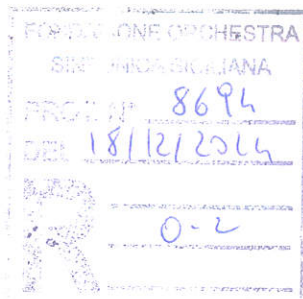 FONDAZIONE ORCHESTRA
SINFONICA SICILIANA
PROT. N° 8694
DEL 18/12/2014
R
0-2